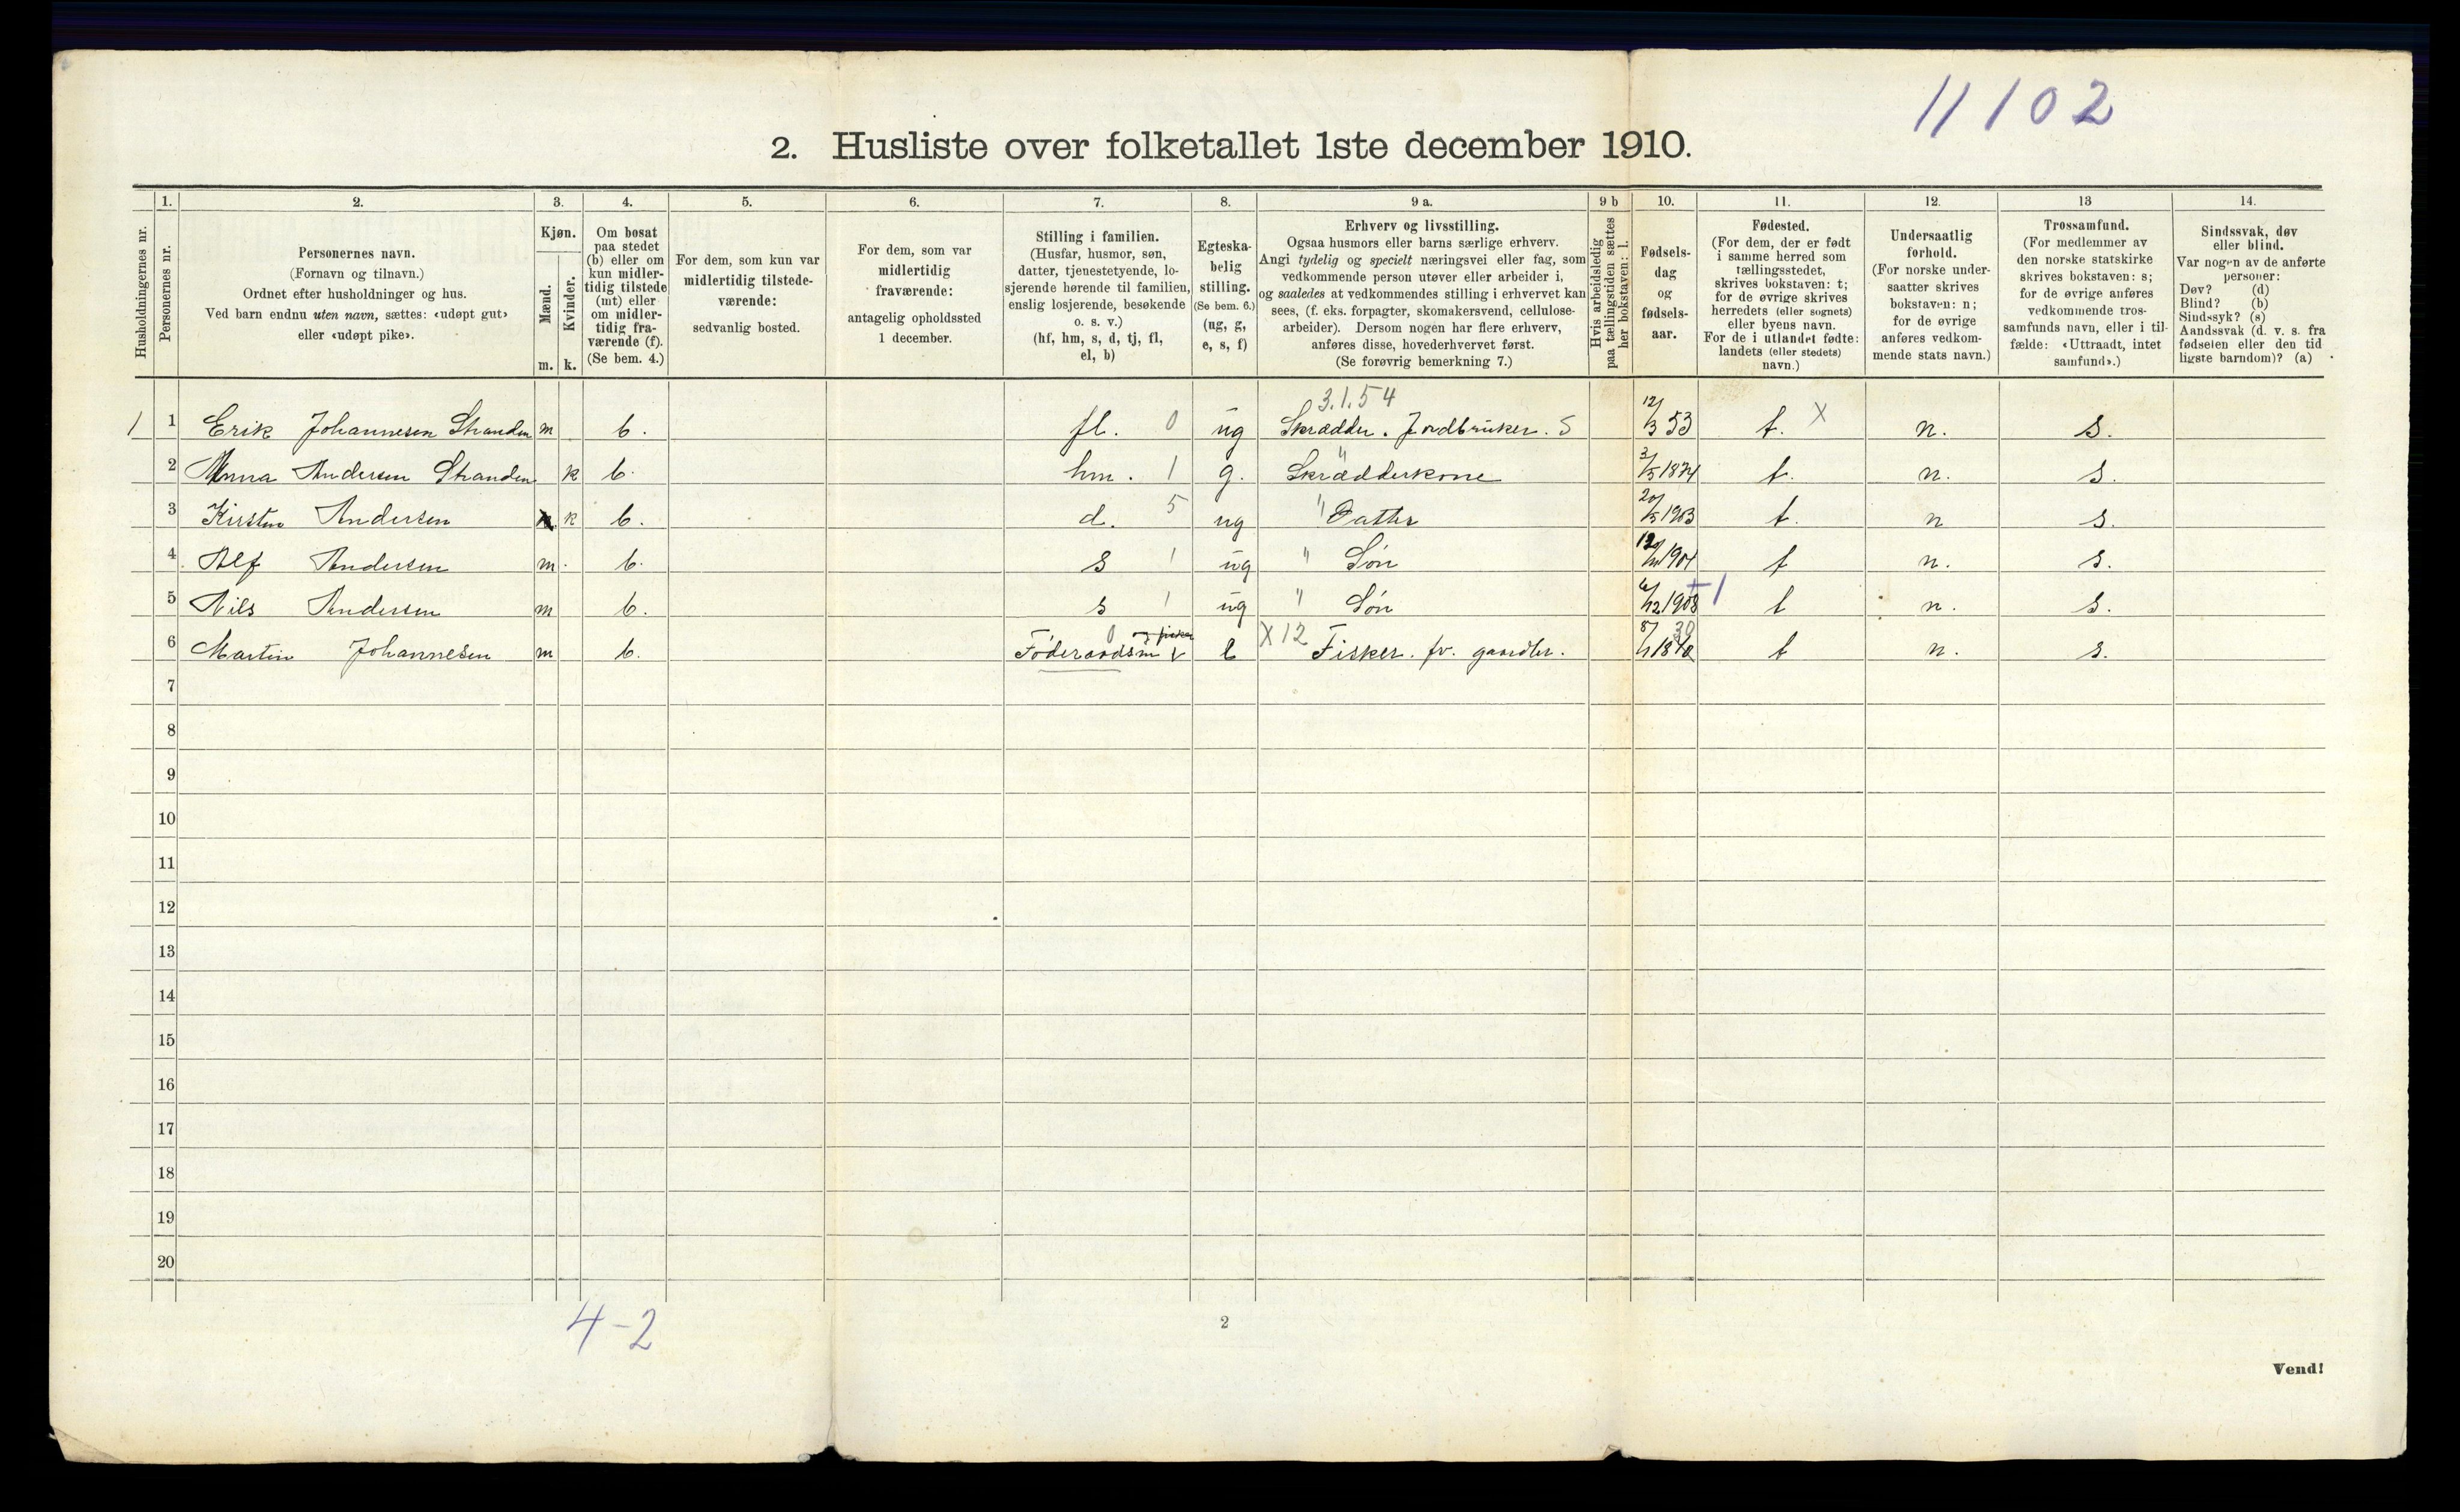 11102
2. Husliste over folketallet 1ste december 1910.
1. 2. 3. 4. 5. 6. 7. 8. 9 a. 9 b 10. 11. 12. 13 14.
Husholdningernes nr.
Personernes nr.
Personernes navn.
(Fornavn og tilnavn.)
Ordnet efter husholdninger og hus.
Ved barn endnu uten navn, sættes: «udøpt gut»
eller «udøpt pike».
Kjøn.
Mænd.
Kvinder.
m. k.
Om bosat
paa stedet
(b) eller om
kun midler-
tidig tilstede
(mt) eller
om midler-
tidig fra-
værende (f).
(Se bem. 4.)
For dem, som kun var
midlertidig tilstede-
værende:
sedvanlig bosted.
For dem, som var
midlertidig
fraværende:
antagelig opholdssted
1 december.
Stilling i familien.
(Husfar, husmor, søn,
datter, tjenestetyende, lo-
sjerende hørende til familien,
enslig losjerende, besøkende
o. s. v.)
(hf, hm, s, d, tj, fl,
el, b)
Egteska-
belig
stilling.
(Se bem. 6.)
(ug, g,
e, s, f)
Erhverv og livsstilling.
Ogsaa husmors eller barns særlige erhverv.
Angi tydelig og specielt næringsvei eller fag, som
vedkommende person utøver eller arbeider i,
og saaledes at vedkommendes stilling i erhvervet kan
sees, (f. eks. forpagter, skomakersvend, cellulose-
arbeider). Dersom nogen har flere erhverv,
anføres disse, hovederhvervet først.
(Se forøvrig bemerkning 7.)
Hvis arbeidsledig
paa tællingstiden sættes
her bokstaven: l.
Fødsels-
dag
og
fødsels-
aar.
Fødested.
(For dem, der er født
i samme herred som
tællingsstedet,
skrives bokstaven: t;
for de øvrige skrives
herredets (eller sognets)
eller byens navn.
For de i utlandet fødte:
landets (eller stedets)
navn.)
Undersaatlig
forhold.
(For norske under-
saatter skrives
bokstaven: n;
for de øvrige
anføres vedkom-
mende stats navn.)
Trossamfund.
(For medlemmer av
den norske statskirke
skrives bokstaven: s;
for de øvrige anføres
vedkommende tros-
samfunds navn, eller i til-
fælde: «Uttraadt, intet
samfund».)
Sindssvak, døv
eller blind.
Var nogen av de anførte
personer:
Døv? (d)
Blind? (b)
Sindssyk? (s)
Aandssvak (d. v. s. fra
fødselen eller den tid
ligste barndom)? (a)
3.1.54
1 1 Erik Johannesen Stranden m b. fl. 0 ug Skrædder. Jordbruker. S 12/3 53 t. X n. s.
2 Anna Andersen Stranden k b. hm. 1 g. Skrædderkone 3/5 1874 t. n. s.
3 Kirsten Andersen k b. d. 5 ug " Datter 20/5 1903 t. n s.
4 Alf Andersen m. b. s 1 ug " Søn 1904 t n. s.
5 Nils Andersen m b. s 1 ug " Søn 6/12 1908 t n. s.
6 Martin Johannesen m b. Føderaadsm 0 e X12 Fisker. fv. gaardbr. 30 t n. s.
7
8
9
10
11
12
13
14
15
16
17
18
19
20
4-2
2
Vend!